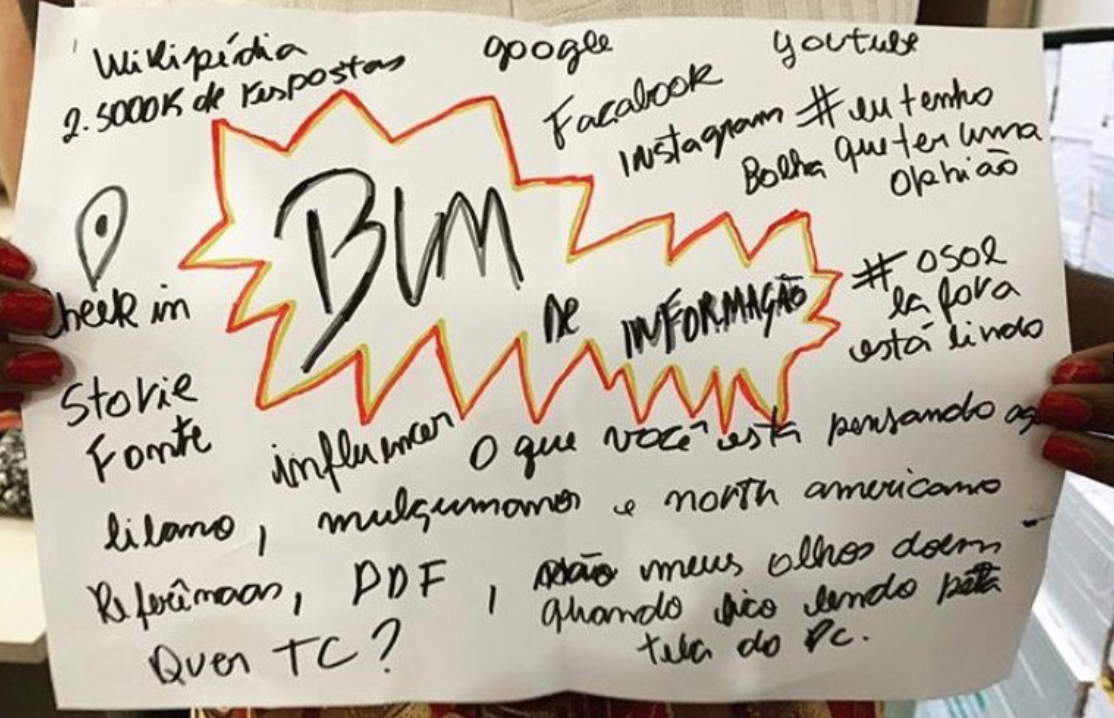 Wikipédia google youtube
2.5000K de respostas
Facabook
Instagram #eu tenho
Bolha que ter uma
opinião
BUM
DE INFORMAÇÃO
Check in
# osol
la fora
está lindo
Storie
Fonte
influencer O que você está pensando ag
e north americano
PDF, não meus olhos doem
quando fico lendo pela
Quer TC?
tela do Pc.